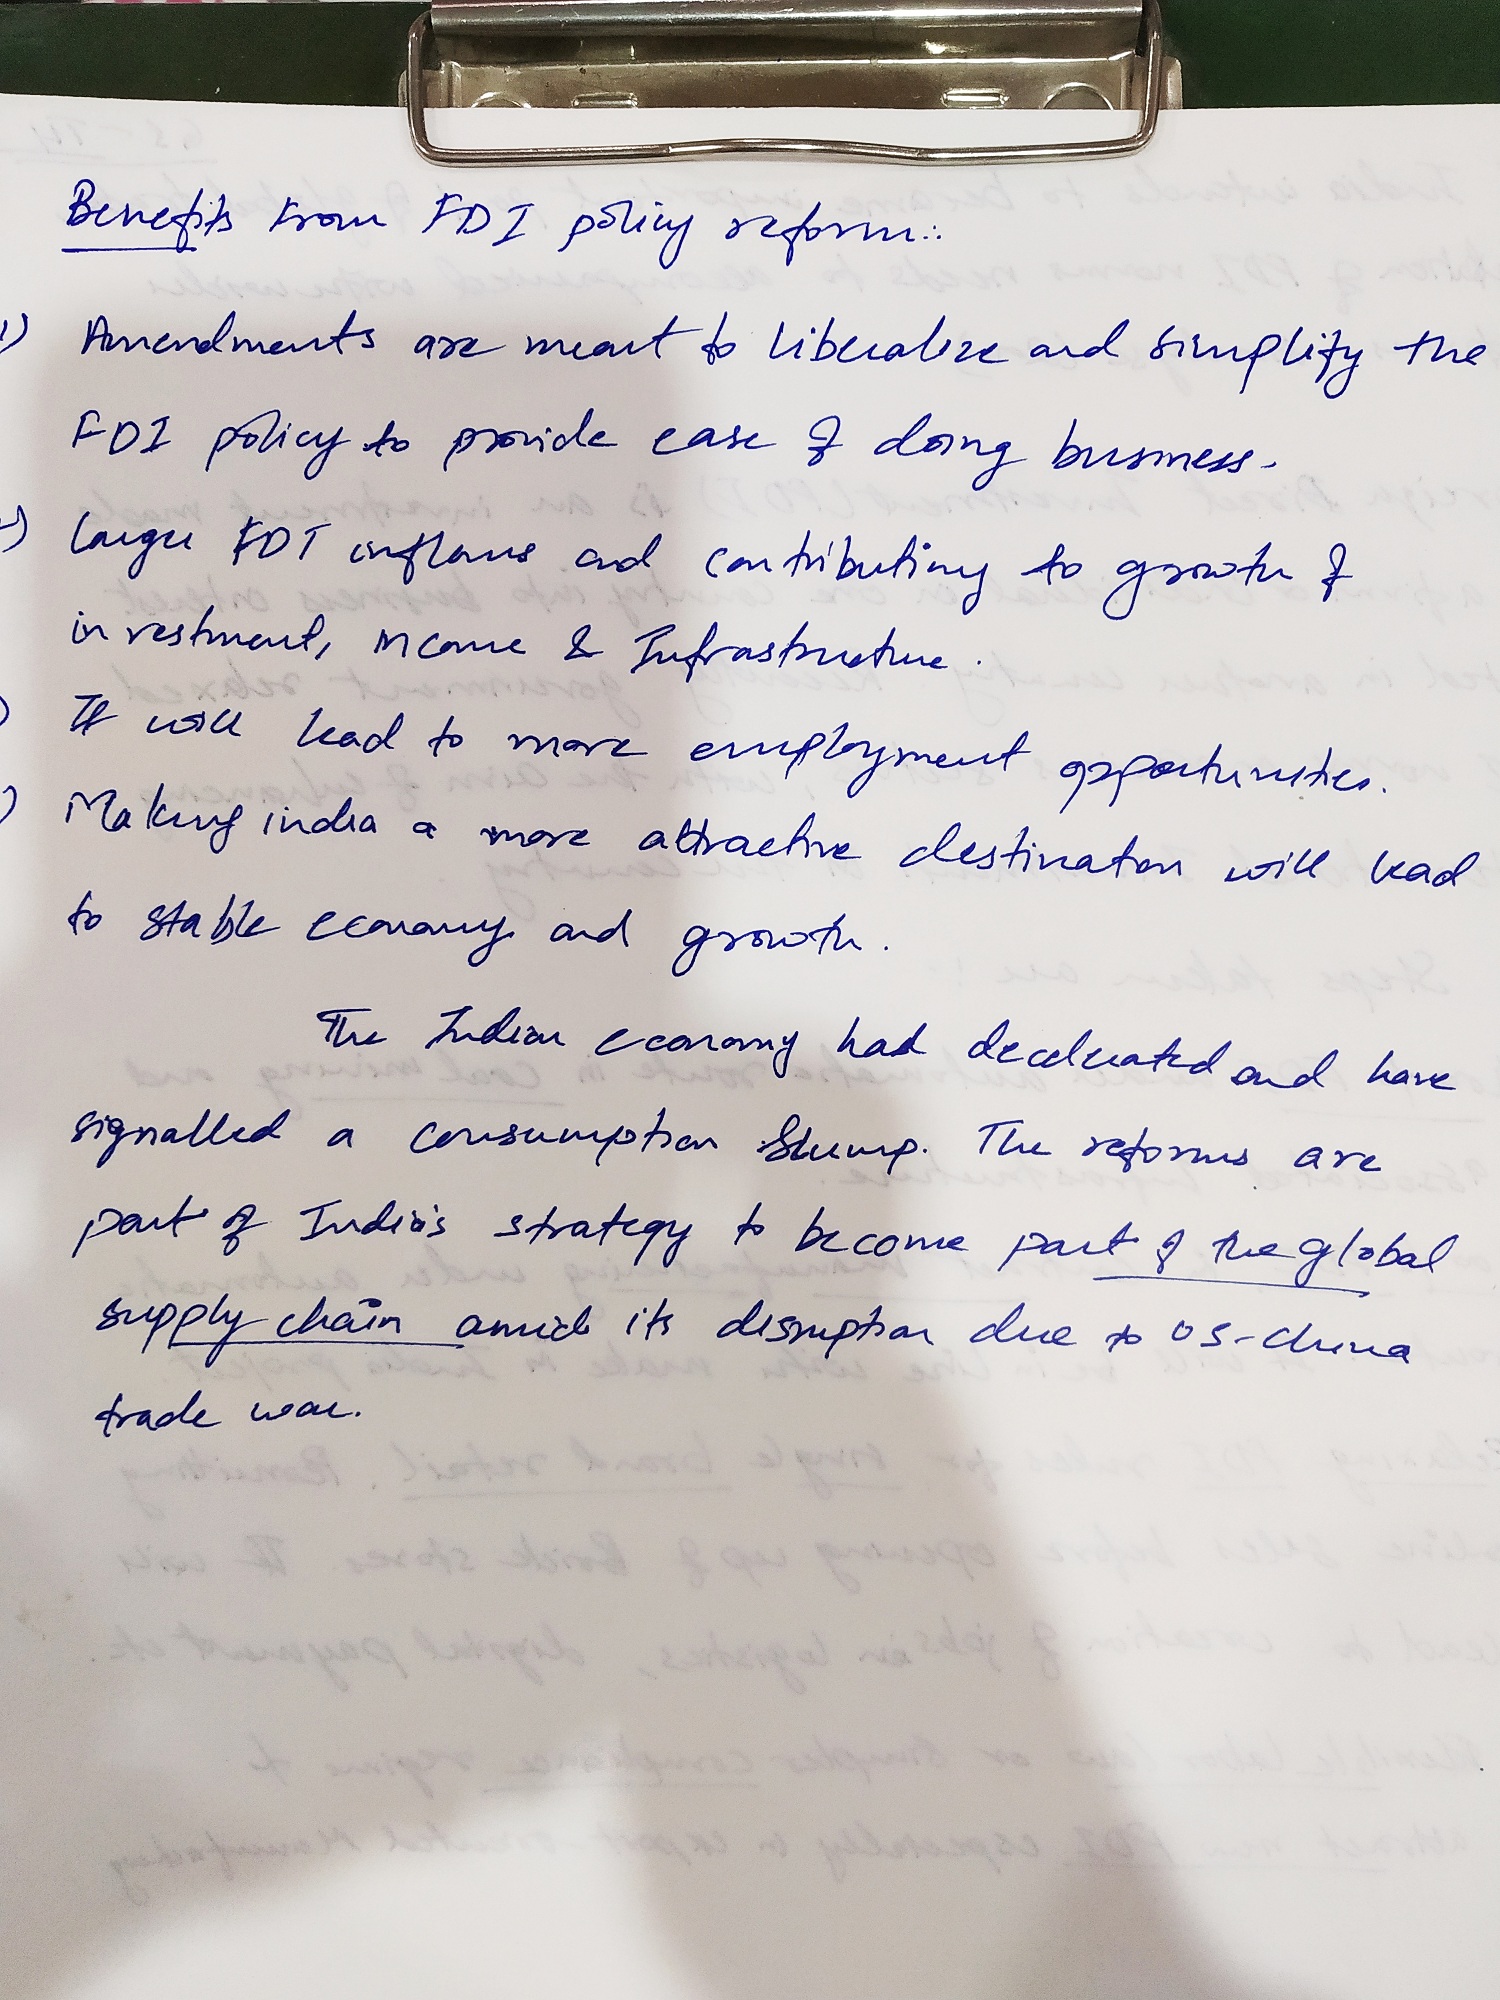 Benefits from FDI policy reform:
1) Amendments are meant to liberalize and simplify the
FDI policy to provide ease of doing business.
Larger FDI inflows and contributing to growth of
investment, income & Infrastructure.
It will lead to more employment opportunities.
Making india a more attractive destination will lead
to stable economy and growth.
The Indian economy had decelerated and have
signalled a consumption slump. The reforms are
part of India's strategy to become part of the global
supply chain amid its disruption due to US-China
trade war.